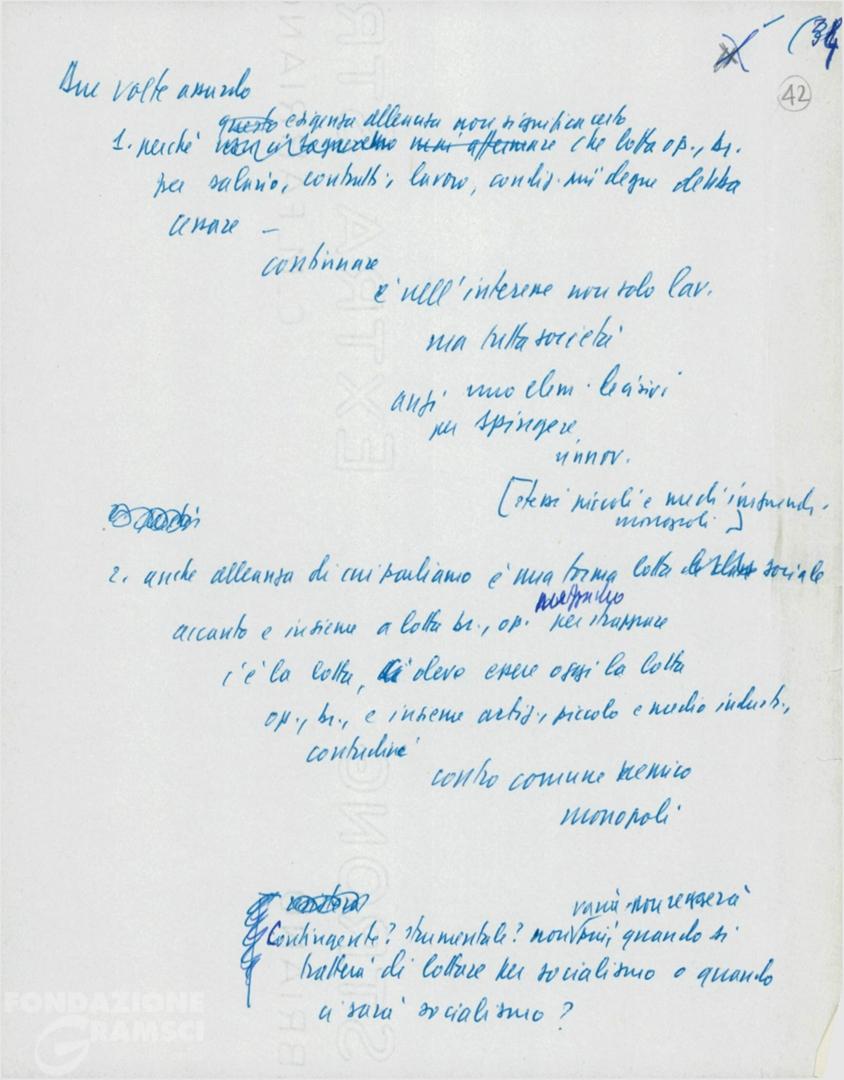 (34
42
Due volte assurdo
questo esigenza alleanza non significa certo
1. perché che lotta op., br.
per salario, contratti, lavoro, condiz. più degne debba
cessare –
continuare
è nell'interesse non solo lav.
ma tutta società
anzi uno elem. decisivi
per spingere
rinnov.
[stessi piccoli e medi imprendi.
monopoli]
2. anche alleanza di cui parliamo è una forma lotta sociale
accanto e insieme a lotta br., op. per strappare
c'è la lotta, deve essere oggi la lotta
op., br., e insieme artig., piccolo e medio industr.,
contadine
contro comune nemico
monopoli
varrà non reggerà
Contingente? strumentale? non più, quando si
tratterà di lottare per socialismo o quando
ci sarà socialismo?
FONDAZIONE
GRAMSCI